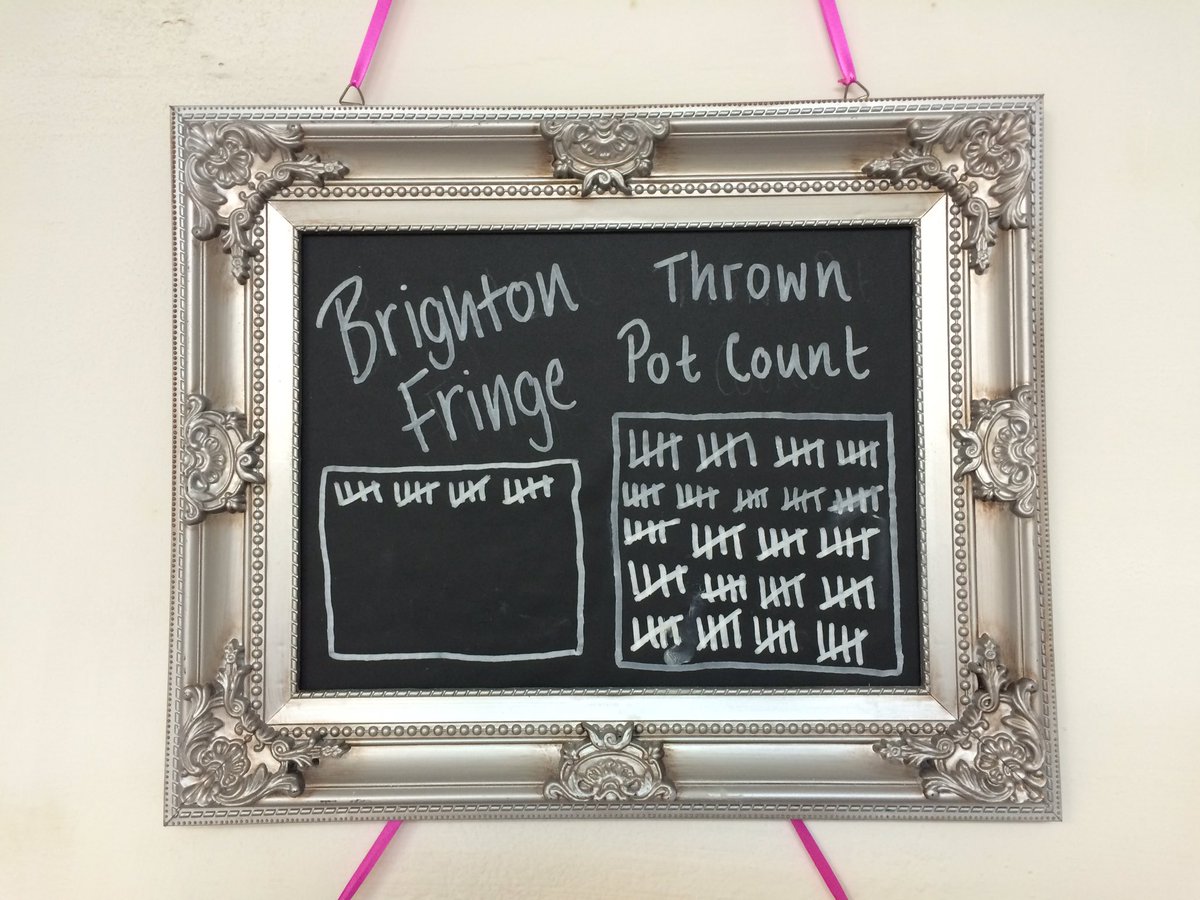 Brighton
Fringe
Thrown
Pot Count